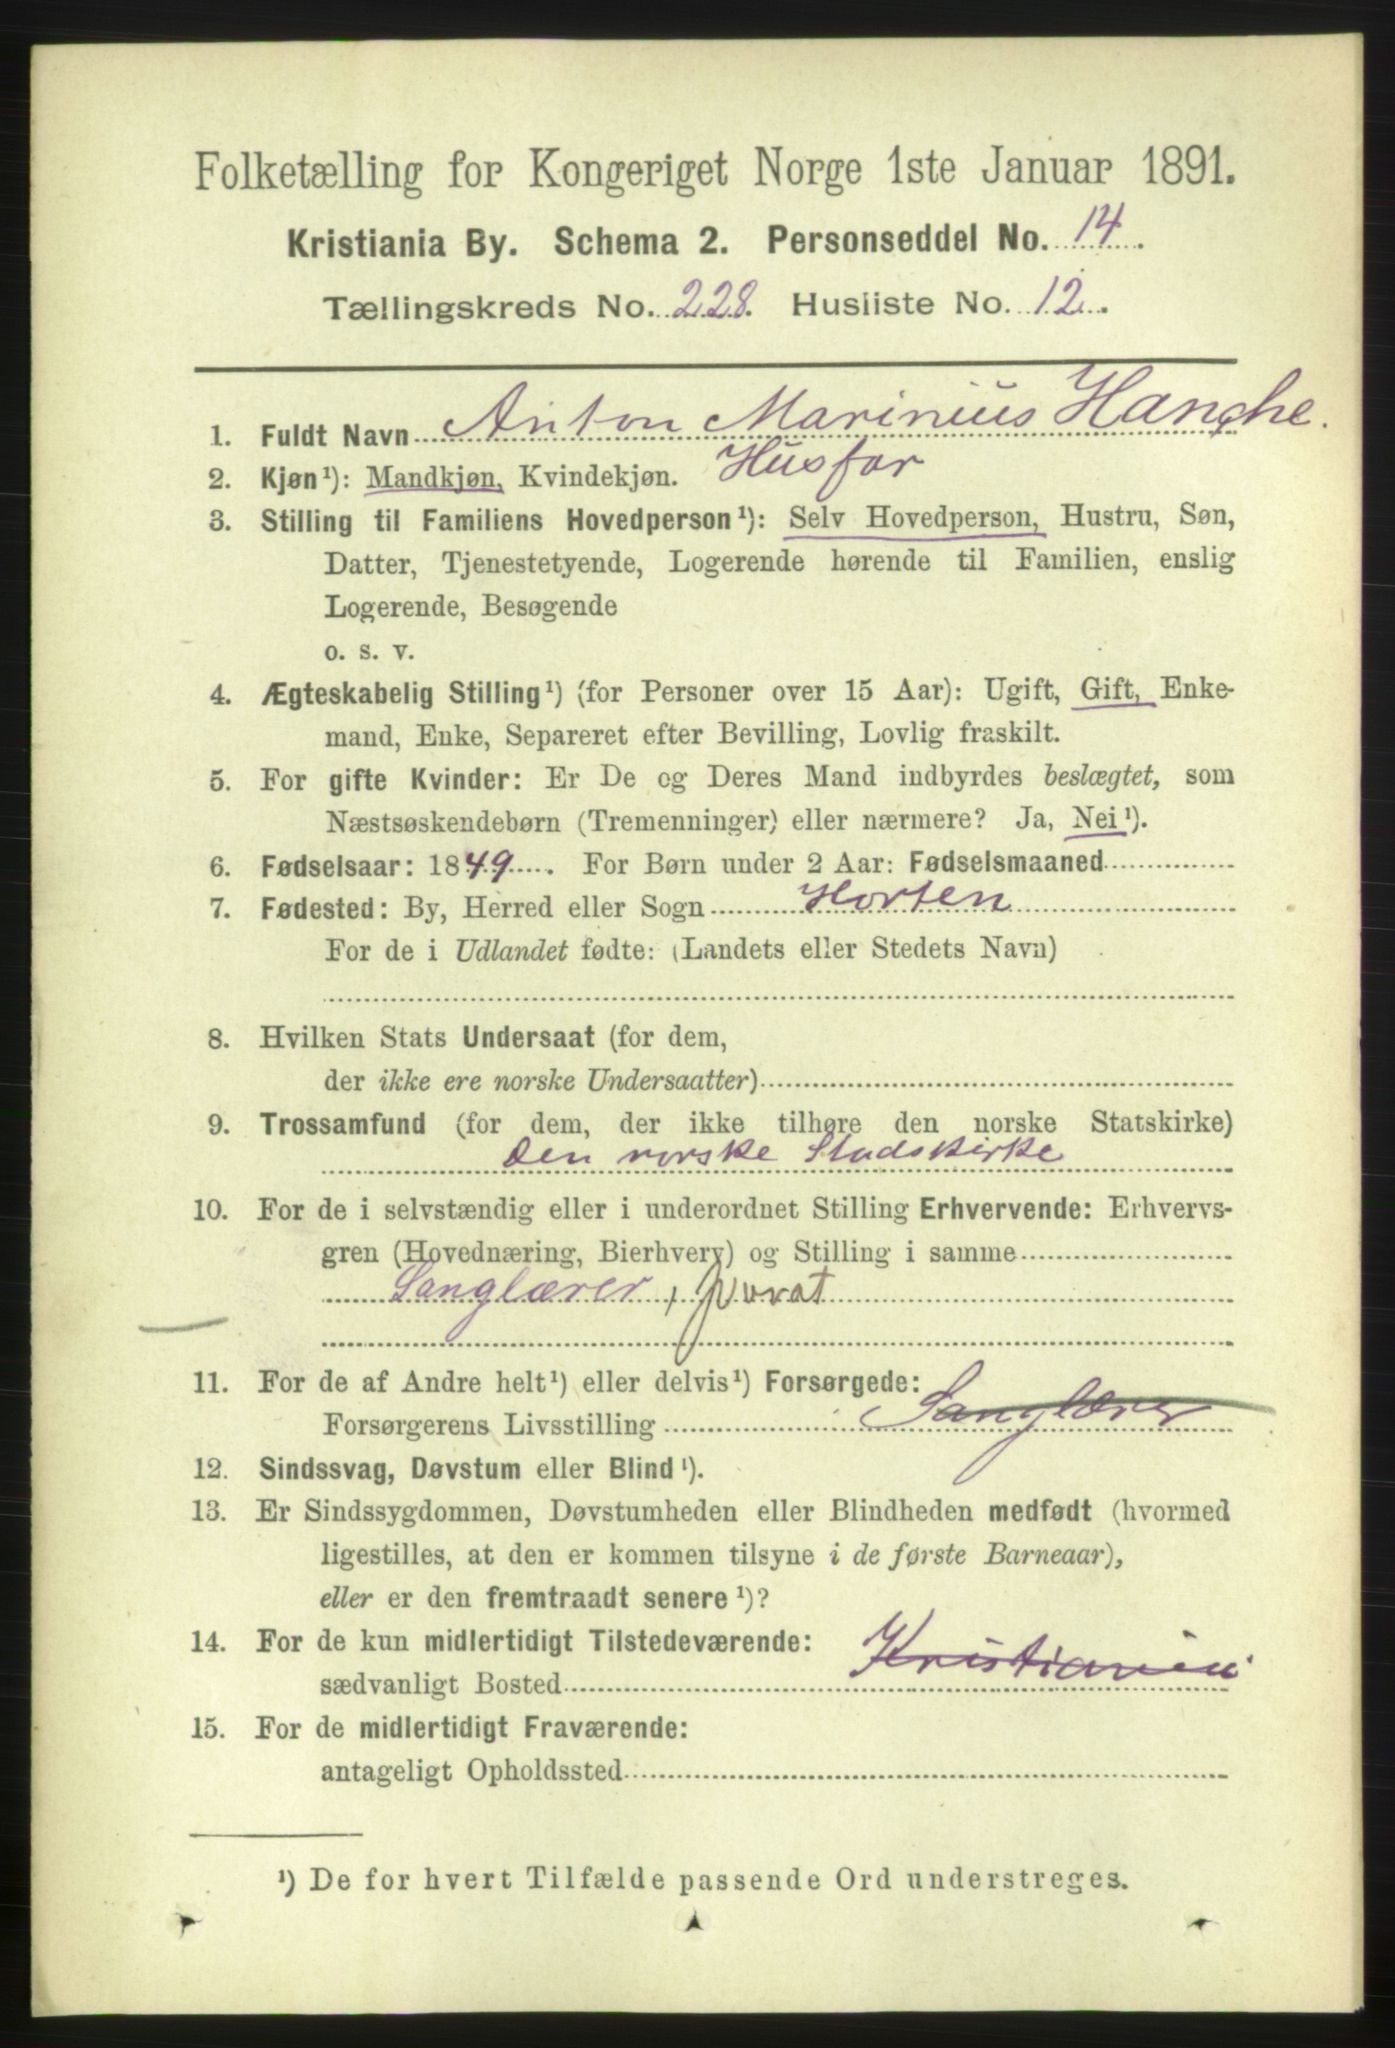 Folketælling for Kongeriget Norge 1ste Januar 1891.
Kristiania By. Schema 2. Personseddel No. 14.
Tællingskreds No. 228. Husliste No. 12.
1. Fuldt Navn Anton Marinius Hanche.
2. Kjøn¹): Mandkjøn, Kvindekjøn. Husfar
3. Stilling til Familiens Hovedperson¹): Selv Hovedperson, Hustru, Søn,
Datter, Tjenestetyende, Logerende hørende til Familien, enslig
Logerende, Besøgende
o. s. v.
4. Ægteskabelig Stilling¹) (for Personer over 15 Aar): Ugift, Gift, Enke-
mand, Enke, Separeret efter Bevilling, Lovlig fraskilt.
5. For gifte Kvinder: Er De og Deres Mand indbyrdes beslægtet, som
Næstsøskendebørn (Tremenninger) eller nærmere? Ja, Nei¹).
6. Fødselsaar: 1849. For Børn under 2 Aar: Fødselsmaaned
7. Fødested: By, Herred eller Sogn Horten
For de i Udlandet fødte: (Landets eller Stedets Navn)
8. Hvilken Stats Undersaat (for dem,
der ikke ere norske Undersaatter)
9. Trossamfund (for dem, der ikke tilhøre den norske Statskirke)
Den norske Stadskirke
10. For de i selvstændig eller i underordnet Stilling Erhvervende: Erhvervs-
gren (Hovednæring, Bierhverv) og Stilling i samme
Sanglærer, pvrat
11. For de af Andre helt¹) eller delvis¹) Forsørgede:
Forsørgerens Livsstilling Sanglærer
12. Sindssvag, Døvstum eller Blind¹).
13. Er Sindssygdommen, Døvstumheden eller Blindheden medfødt (hvormed
ligestilles, at den er kommen tilsyne i de første Barneaar),
eller er den fremtraadt senere¹)?
14. For de kun midlertidigt Tilstedeværende: Kristiania
sædvanligt Bosted
15. For de midlertidigt Fraværende:
antageligt Opholdssted
¹) De for hvert Tilfælde passende Ord understreges.